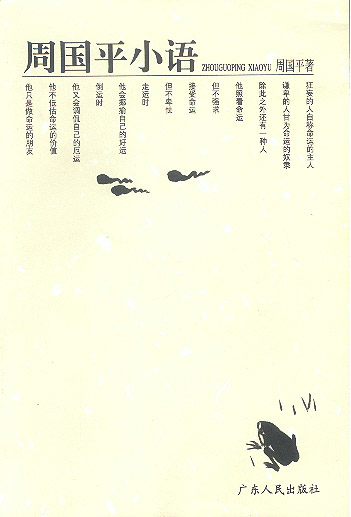 周国平小语 ZHOUGUOPING XIAOYU 周国平著
狂妄的人自称命运的主人
谦卑的人甘为命运的奴隶
除此之外还有一种人
他照看命运
但不强求
接受命运
但不卑怯
走运时
他会揶揄自己的好运
倒运时
他又会调侃自己的厄运
他不低估命运的价值
他只是做命运的朋友
广东人民出版社